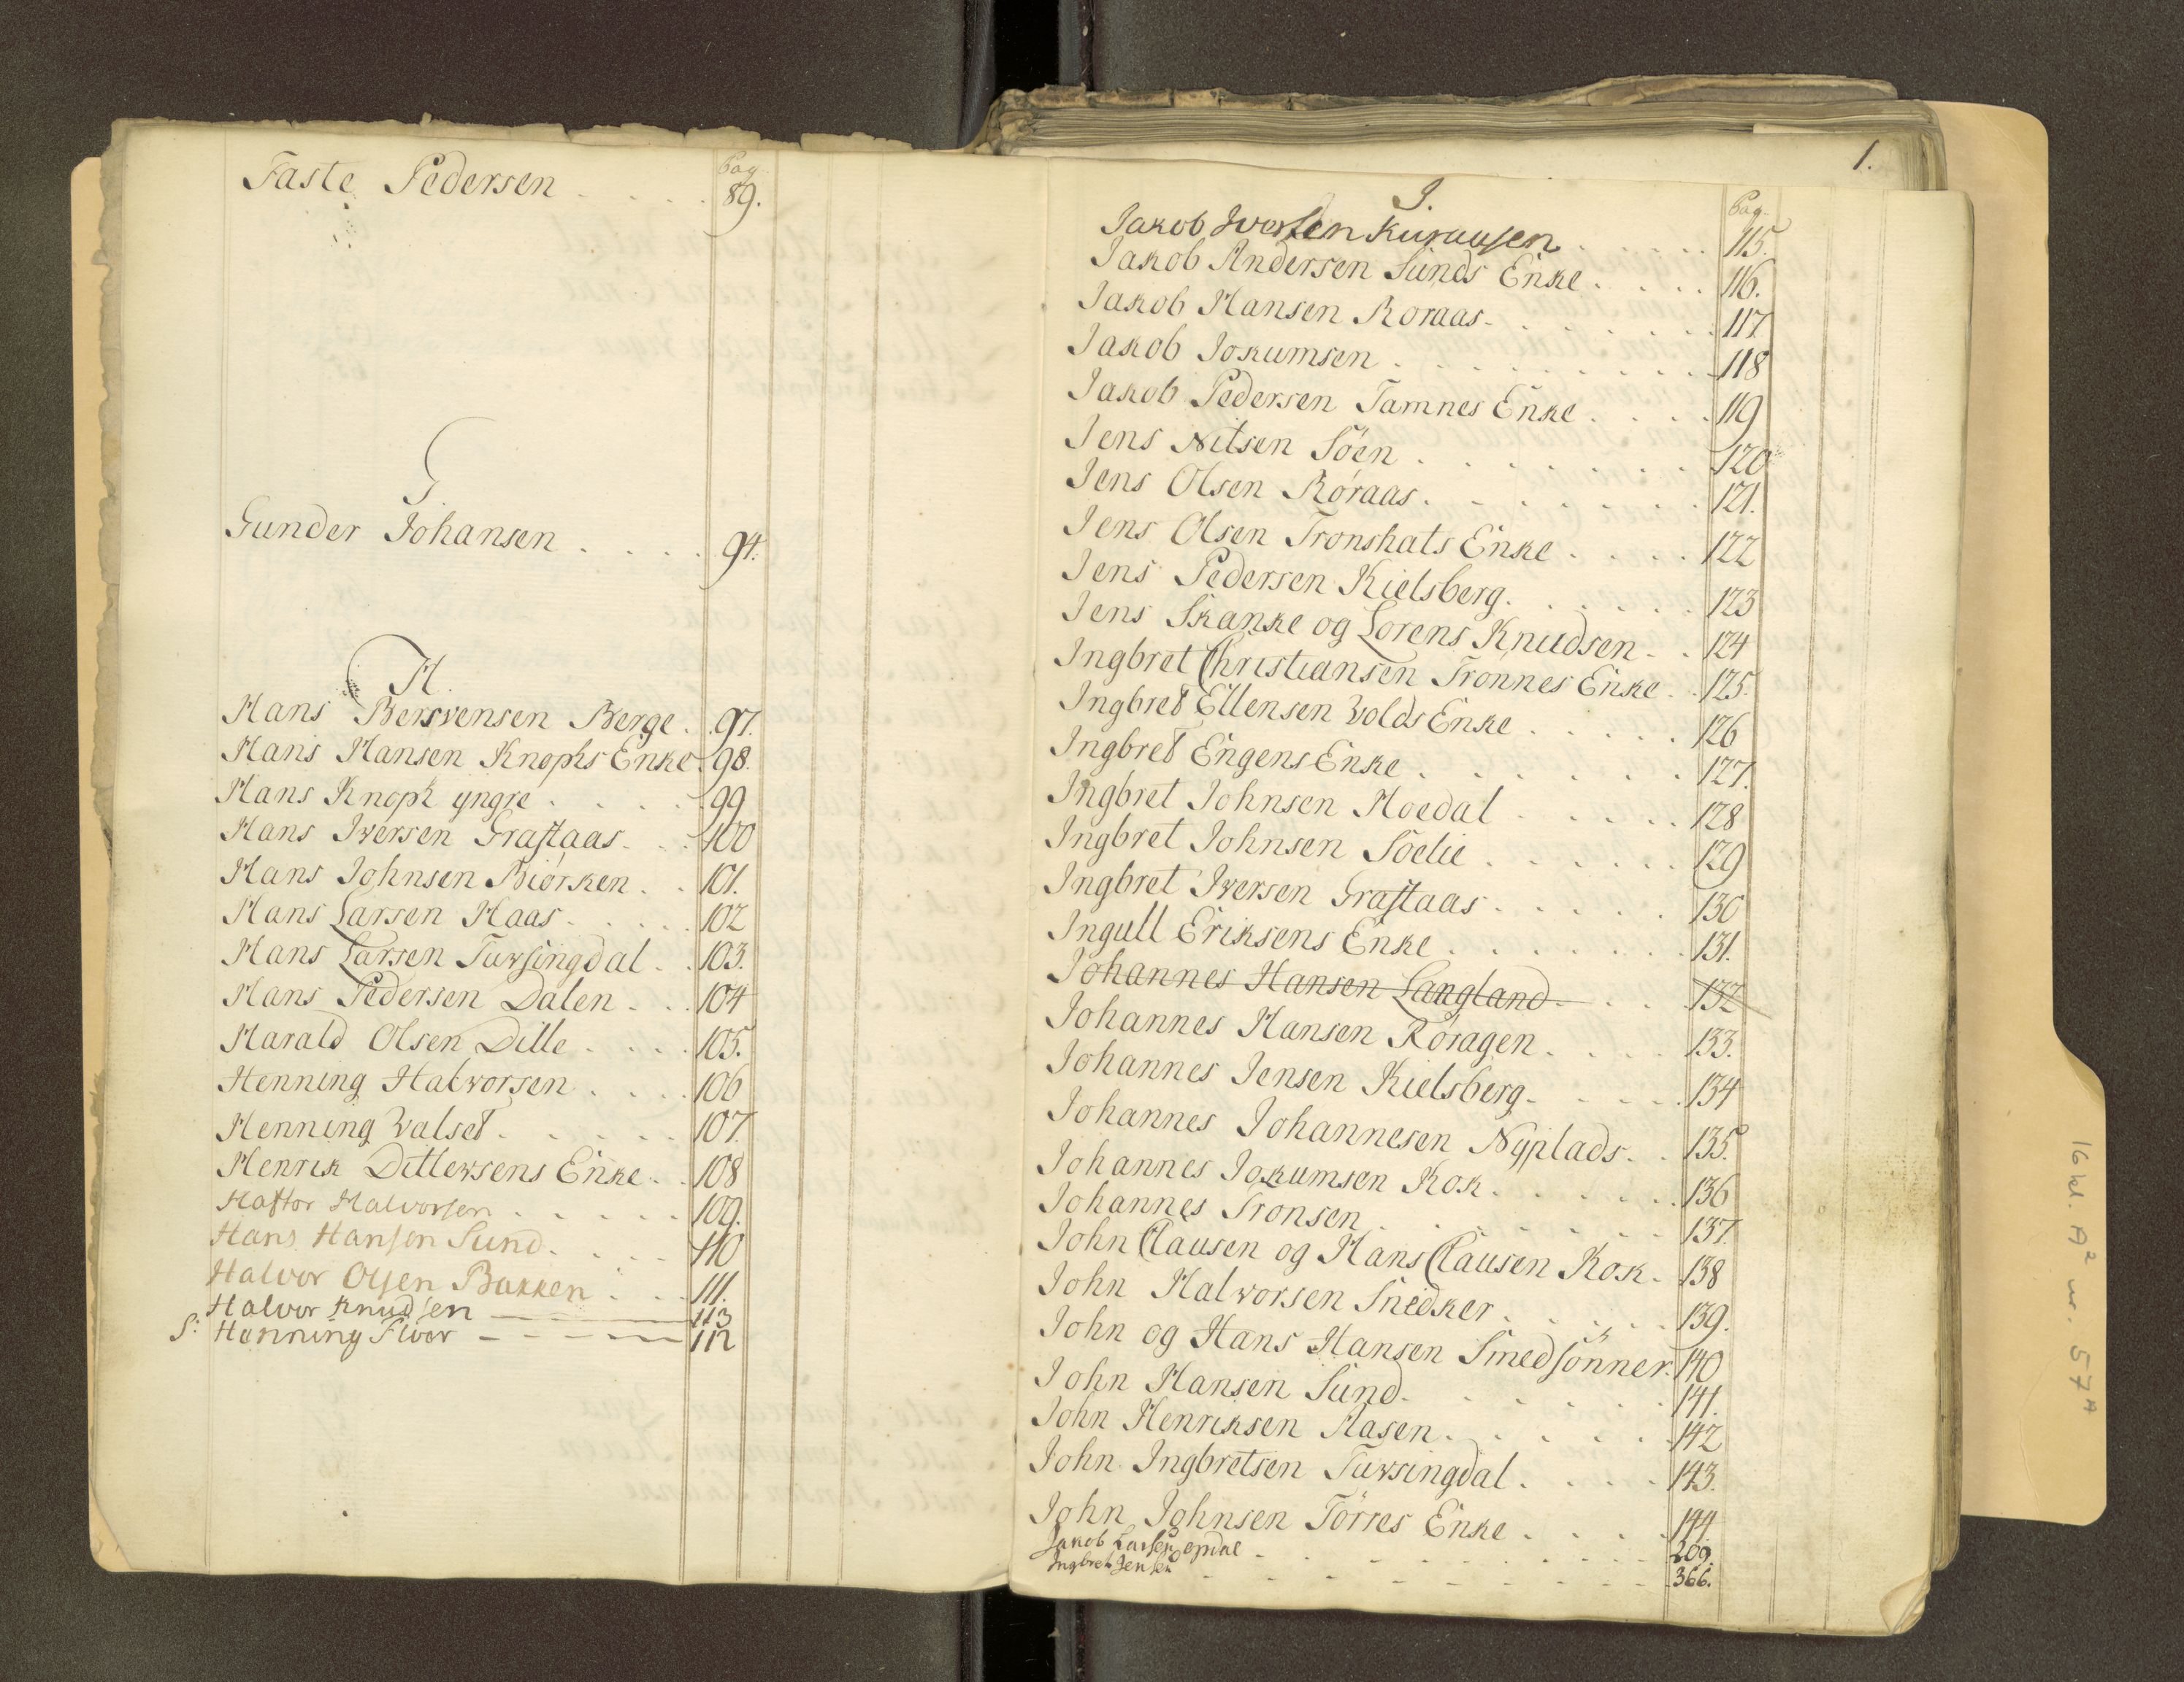 Pag
Faste Pedersen . . . . 89.
G
Gunder Johansen . . . . 94.
H.
Hans Bersvensen Berge . . 97.
Hans Hansen Knophs Enke 98.
Hans Knoph yngre . . . . 99
Hans Iversen Graftaas . . . 100
Hans Johnsen Biörken . . 101.
Hans Larsen Haas . . . . . 102
Hans Larsen Tuvsingdal . . 103.
Hans Pedersen Dalen . . . 104
Harald Olsen Dille . . . . 105.
Henning Halvorsen . . . . 106
Henning Valset . . . . . 107.
Henrik Ditlevsens Enke . . 108
Haftor Halvorsen . . . . . 109.
Hans Hansen Sund . . . . 110
Halvor Olsen Bakken . . . 111.
Halvor Knudsen 113
S: Henning Floor 112
1.
I.
Pag.
Jakob Iversen Kuraasen . . . . . 115.
Jakob Andersen Sunds Enke . . . . 116.
Jakob Hansen Röraas . . . . . . 117
Jakob Jokumsen . . . . . . . . 118
Jakob Pedersen Tamnes Enke . . . . 119
Jens Nilsen Söen . . . . . . . 120
Jens Olsen Röraas . . . . . . . 121.
Jens Olsen Tronshats Enke . . . . 122
Jens Pedersen Kielsberg . . . . . . 123
Jens Skanke og Lorens Knudsen . . 124
Ingbret Christiansen Trönnes Enke . . 125.
Ingbret Ellensen Volds Enke . . . . . 126
Ingbret Engens Enke . . . . . . 127.
Ingbret Johnsen Hoedal . . . . . 128
Ingbret Johnsen Söelie . . . . . . 129
Ingbret Iversen Graftaas . . . . . 130
Ingull Eriksens Enke . . . . . . . 131.
Johannes Hansen Langland . . . 132
Johannes Hansen Röragen . . . . 133.
Johannes Jensen Kielsberg . . . . 134
Johannes Johannesen Nyplads . . 135.
Johannes Jokumsen Kok . . . . . . 136
Johannes Tronsen . . . . . . . . 137.
John Clausen og Hans Clausen Kok . 138
John Halvorsen Snedker . . . . . 139.
John og Hans Hansen Smedsönner . 140
John Hansen Sund . . . . . . 141.
John Henriksen Aasen . . . . . 142
John Ingbretsen Tuvsingdal . . . . 143.
John Johnsen Törres Enke . . . . 144.
Jakob Larsen Opdal . . . . . . . . 209.
Ingbret Jensen . . . . . . . . 366.
16 kl. A² nr. 57ᴬ